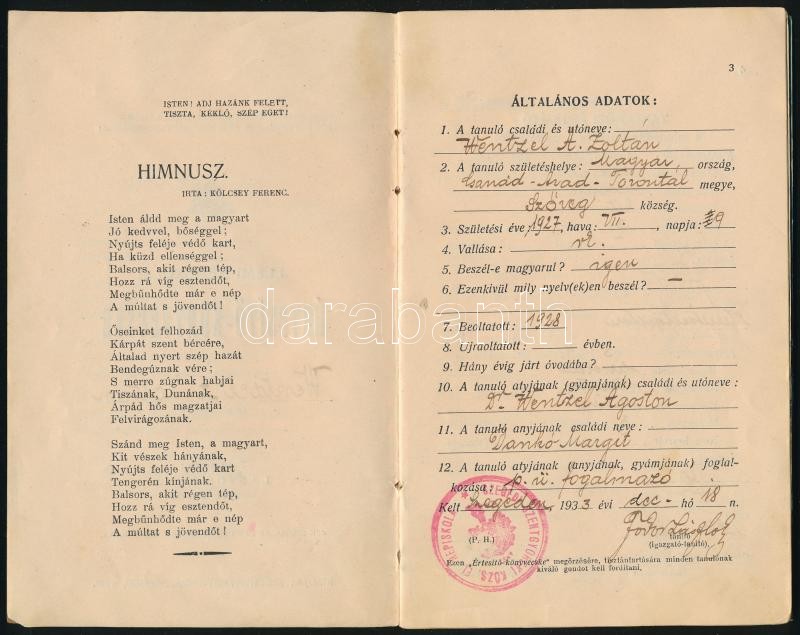 ISTEN! ADJ HAZÁNK FELETT,
TISZTA, KÉKLŐ, SZÉP EGET!
HIMNUSZ.
IRTA: KÖLCSEY FERENC.
Isten áldd meg a magyart
Jó kedvvel, bőséggel;
Nyújts feléje védő kart,
Ha küzd ellenséggel;
Balsors, akit régen tép,
Hozz rá víg esztendőt,
Megbűnhődte már e nép
A múltat s jövendőt!
Őseinket felhozád
Kárpát szent bércére,
Általad nyert szép hazát
Bendegúznak vére;
S merre zúgnak habjai
Tiszának, Dunának,
Árpád hős magzatjai
Felvirágozának.
Szánd meg Isten, a magyart,
Kit vészek hányának,
Nyujts feléje védő kart
Tengerén kínjának.
Balsors, akit régen tép,
Hozz rá víg esztendőt,
Megbűnhődte már e nép
A multat s jövendőt!
3
ÁLTALÁNOS ADATOK:
1. A tanuló családi és utóneve:
Wentzel A. Zoltán
2. A tanuló születéshelye: Magyar ország,
Csanád-Arad-Torontál megye,
Szőreg község.
3. Születési éve: 1927, hava: VII., napja: 9
4. Vallása: rk.
5. Beszél-e magyarul? igen
6. Ezenkivül mily nyelv(ek)en beszél? —
7. Beoltatott: 1928
8. Ujraoltatott: évben.
9. Hány évig járt óvodába?
10. A tanuló atyjának (gyámjának) családi és utóneve:
Dr. Wentzel Ágoston
11. A tanuló anyjának családi neve:
Dankó Margit
12. A tanuló atyjának (anyjának, gyámjának) foglal-
kozása: p. ü. fogalmazó
Kelt Szegeden, 1933 évi dec. hó 18 n.
(P. H.)
Fodor László
tanító
(igazgató-tanító).
Ezen „Értesitő-könyvecske" megőrzésére, tisztántartására minden tanulónak
kiváló gondot kell fordítani.
darabanth